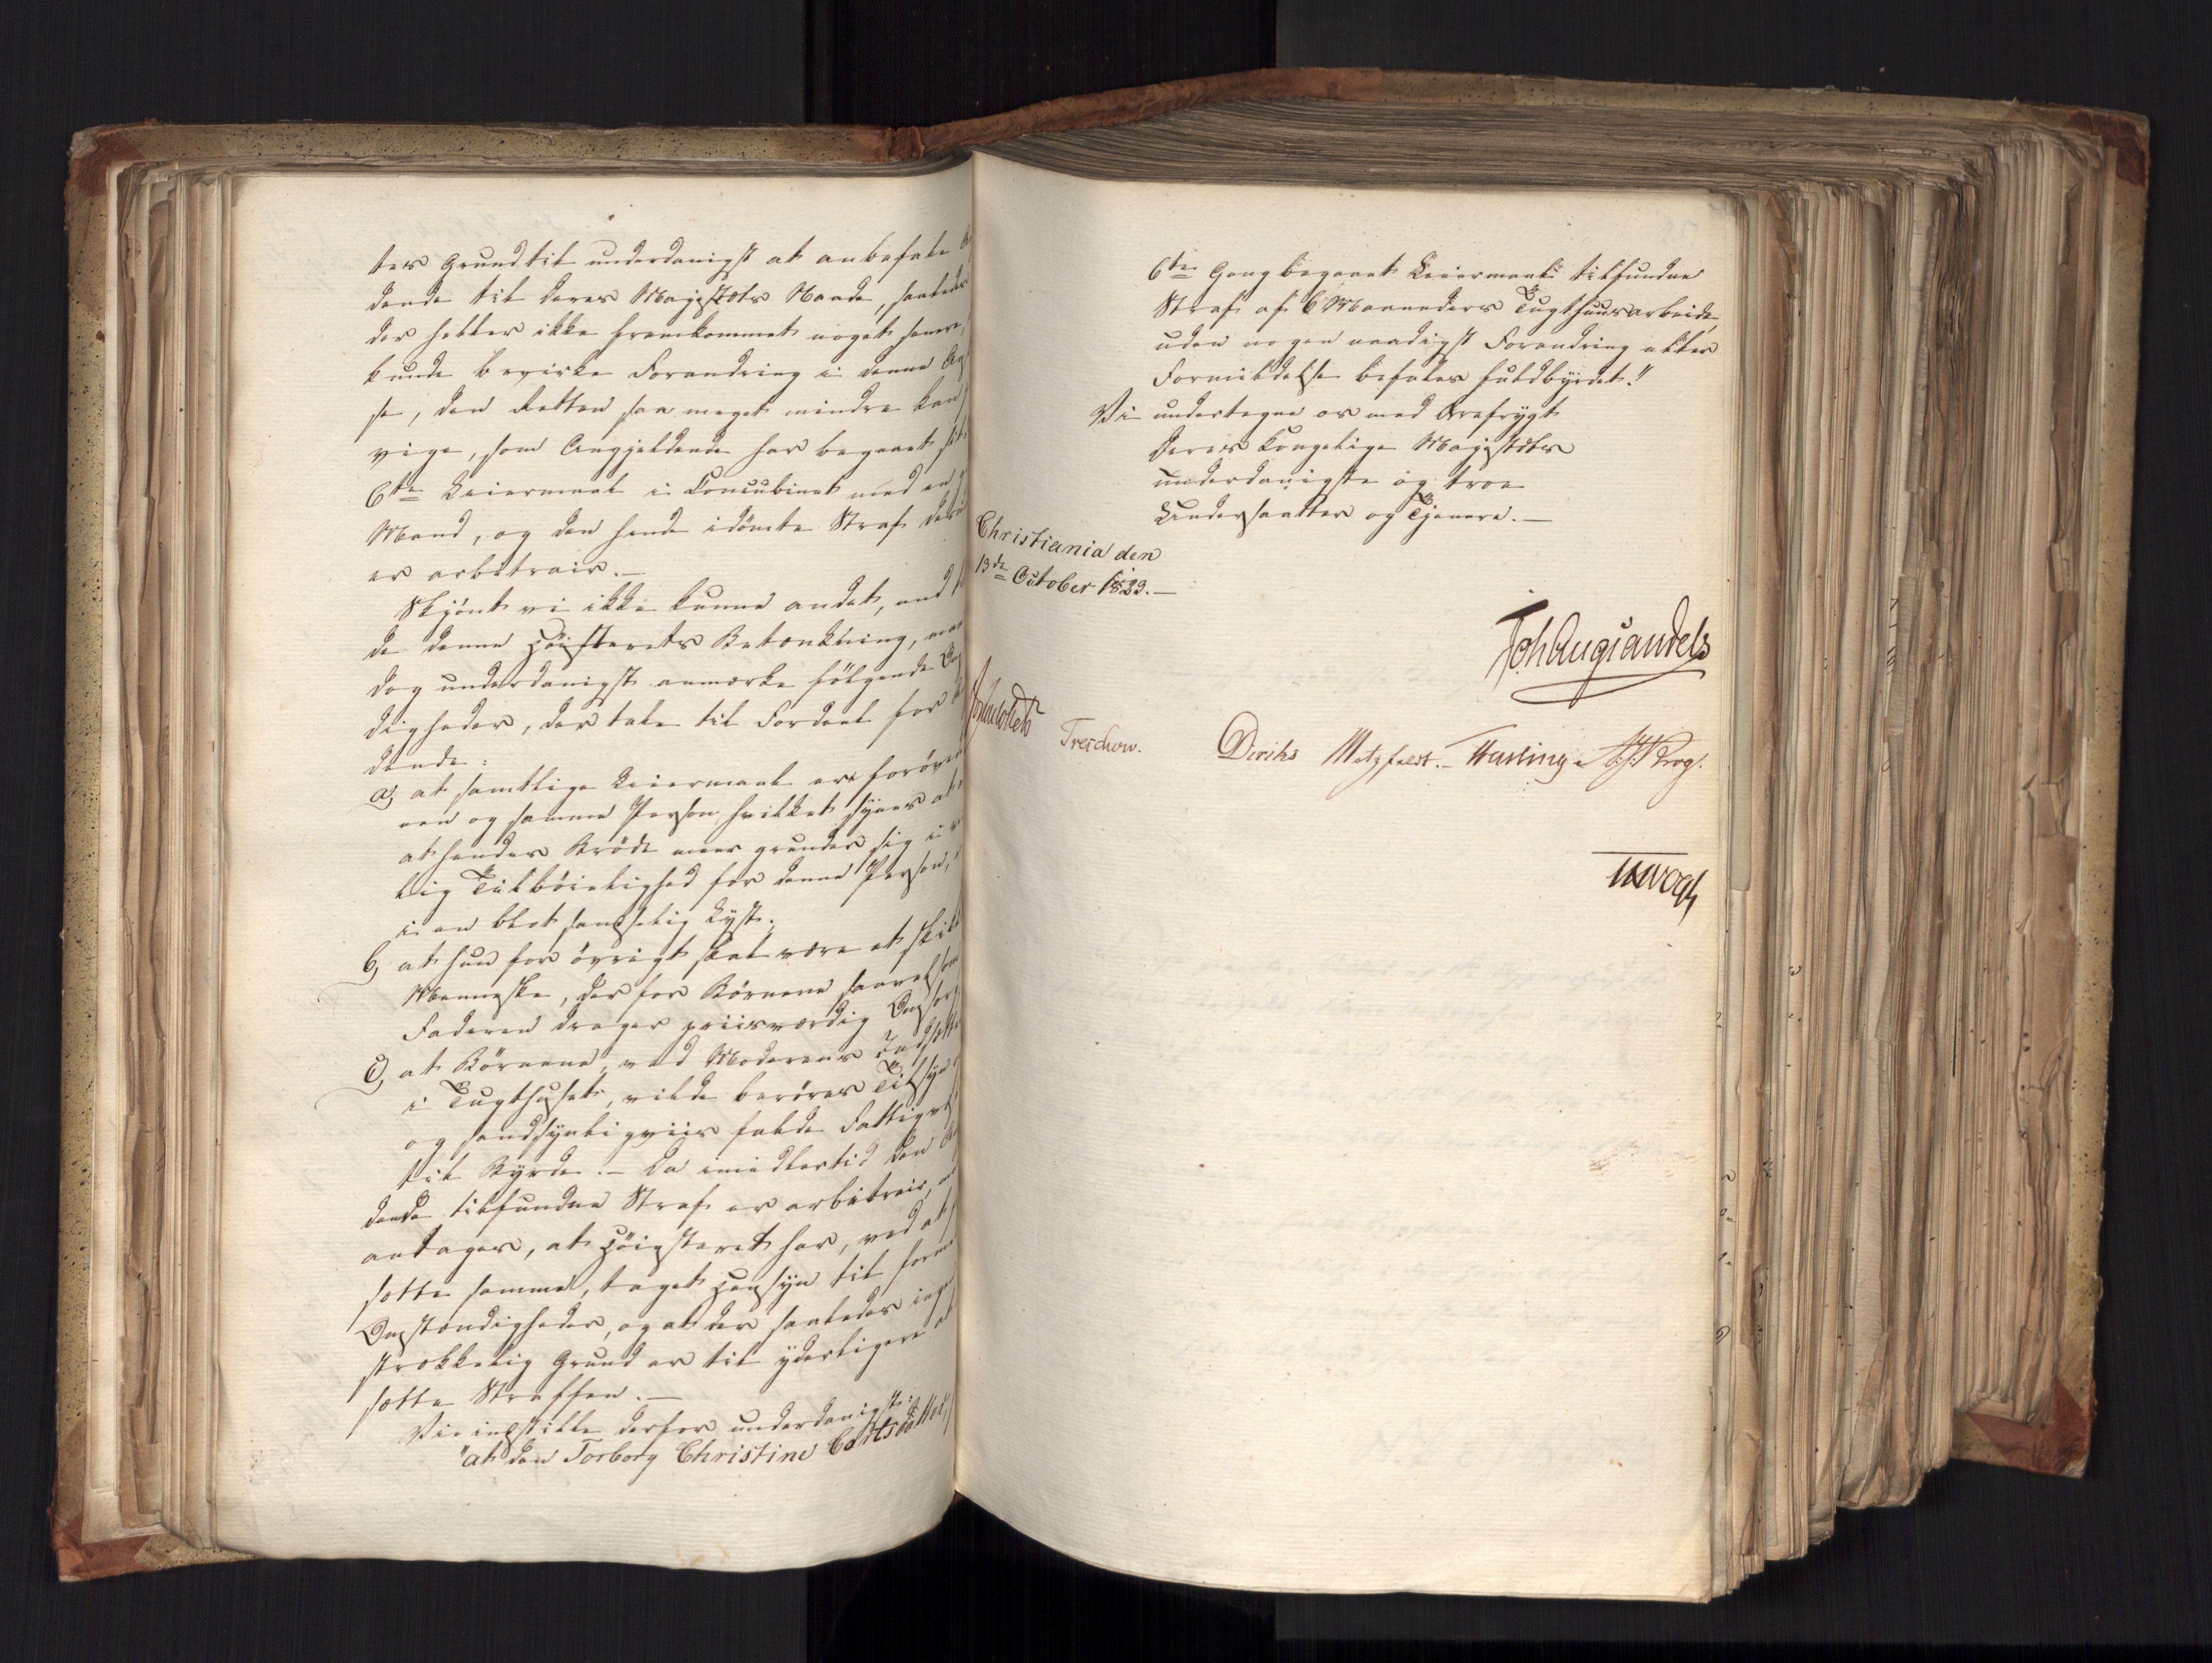 ter Grund til underdanigst at anbefale
dende til Deres Majestæts Naade, saaledes
der heller ikke fremkommet noget senere,
kunde bevirke Forandring i denne
se, den Retten saa meget mindre kan
vige, som Angjeldende har begaaet sit
6te Leiermaal i Concubinat med en
Mand, og den hende idömte Straf
er arbitrair.—
Skjönt vi ikke kunne andet, end
de denne Höiesterets Betænkning, maa
dog underdanigst anmærke fölgende
digheder, der tale til Fordeel for
dende:
a, at samtlige Leiermaal ere foröve
een og samme Person, hvilket synes at
at hendes Bröde meer grunder sig i
lig Tilböielighed for denne Person,
i en blot sandselig Lyst;
b, at hun for övrigt skal være et skik
Menneske, der for Börnene saavelsom
Faderen drager priisværdig Omsorg
c, at Börnene, ved Moderens Indsætte
i Tugthuset, vilde beröves Tilsyn
og sandsynligviis falde Fattigvæ
til Byrde.— Da imidlertid den
dende tilfundne Straf er arbitrair,
antages, at Höiesteret har, ved at
sætte samme, taget Hensyn til
Omstændigheder, og at der saaledes
strækkelig Grund er til yderligere
sætte Straffen.—
Vi indstille derfor underdanigst:
"at den Torborg Christine Carlsdatter,
6te Gang begaaet Leiermaal tilfundne
Straf af 6 Maaneders Tugthuusarbeide,
uden nogen naadigst Forandring eller
Formildelse befales fuldbyrdet."
Vi undertegne os med Ærefrygt
Deres Kongelige Majestæts
underdanigste og troe
Undersaatter og Tjenere.—
Christiania den
13de October 1823.—
Joh Aug Sandels
Treschow.
Diriks Motzfeldt. Fasting
Krog.
Vogt